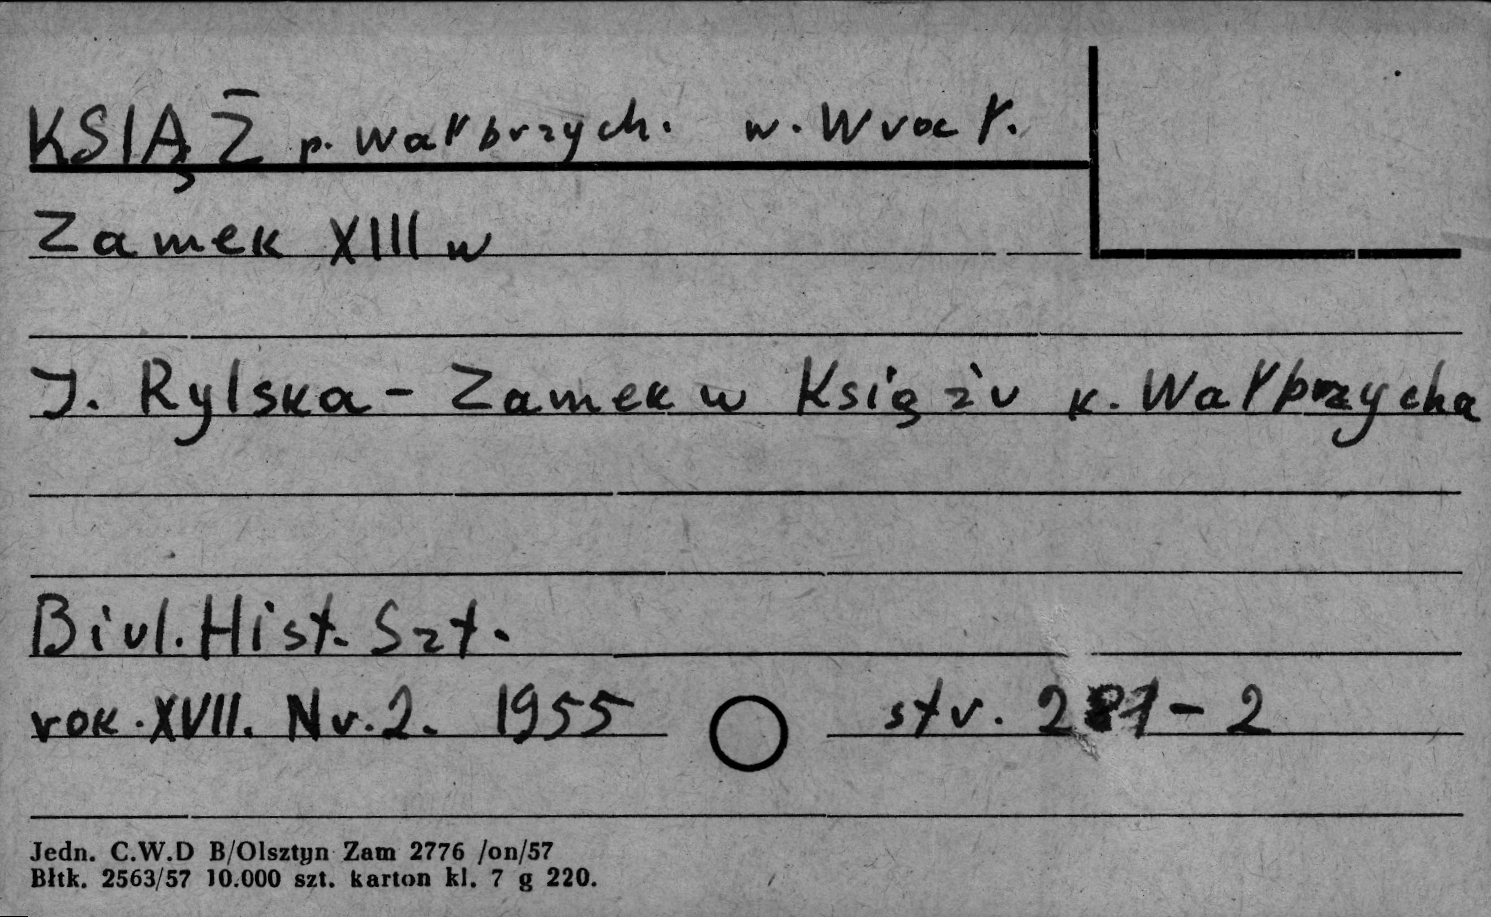 KSIĄŻ p. wałbrzych. w. Wrocł.
Zamek XIII w
J. Rylska - Zamek w Książu k. Wałbrzycha
Biul. Hist. Szt.
rok. XVII. Nr. 2. 1955 str. 281-2
Jedn. C.W.D B/Olsztyn Zam 2776 /on/57
Błtk. 2563/57 10.000 szt. karton kl. 7 g 220.